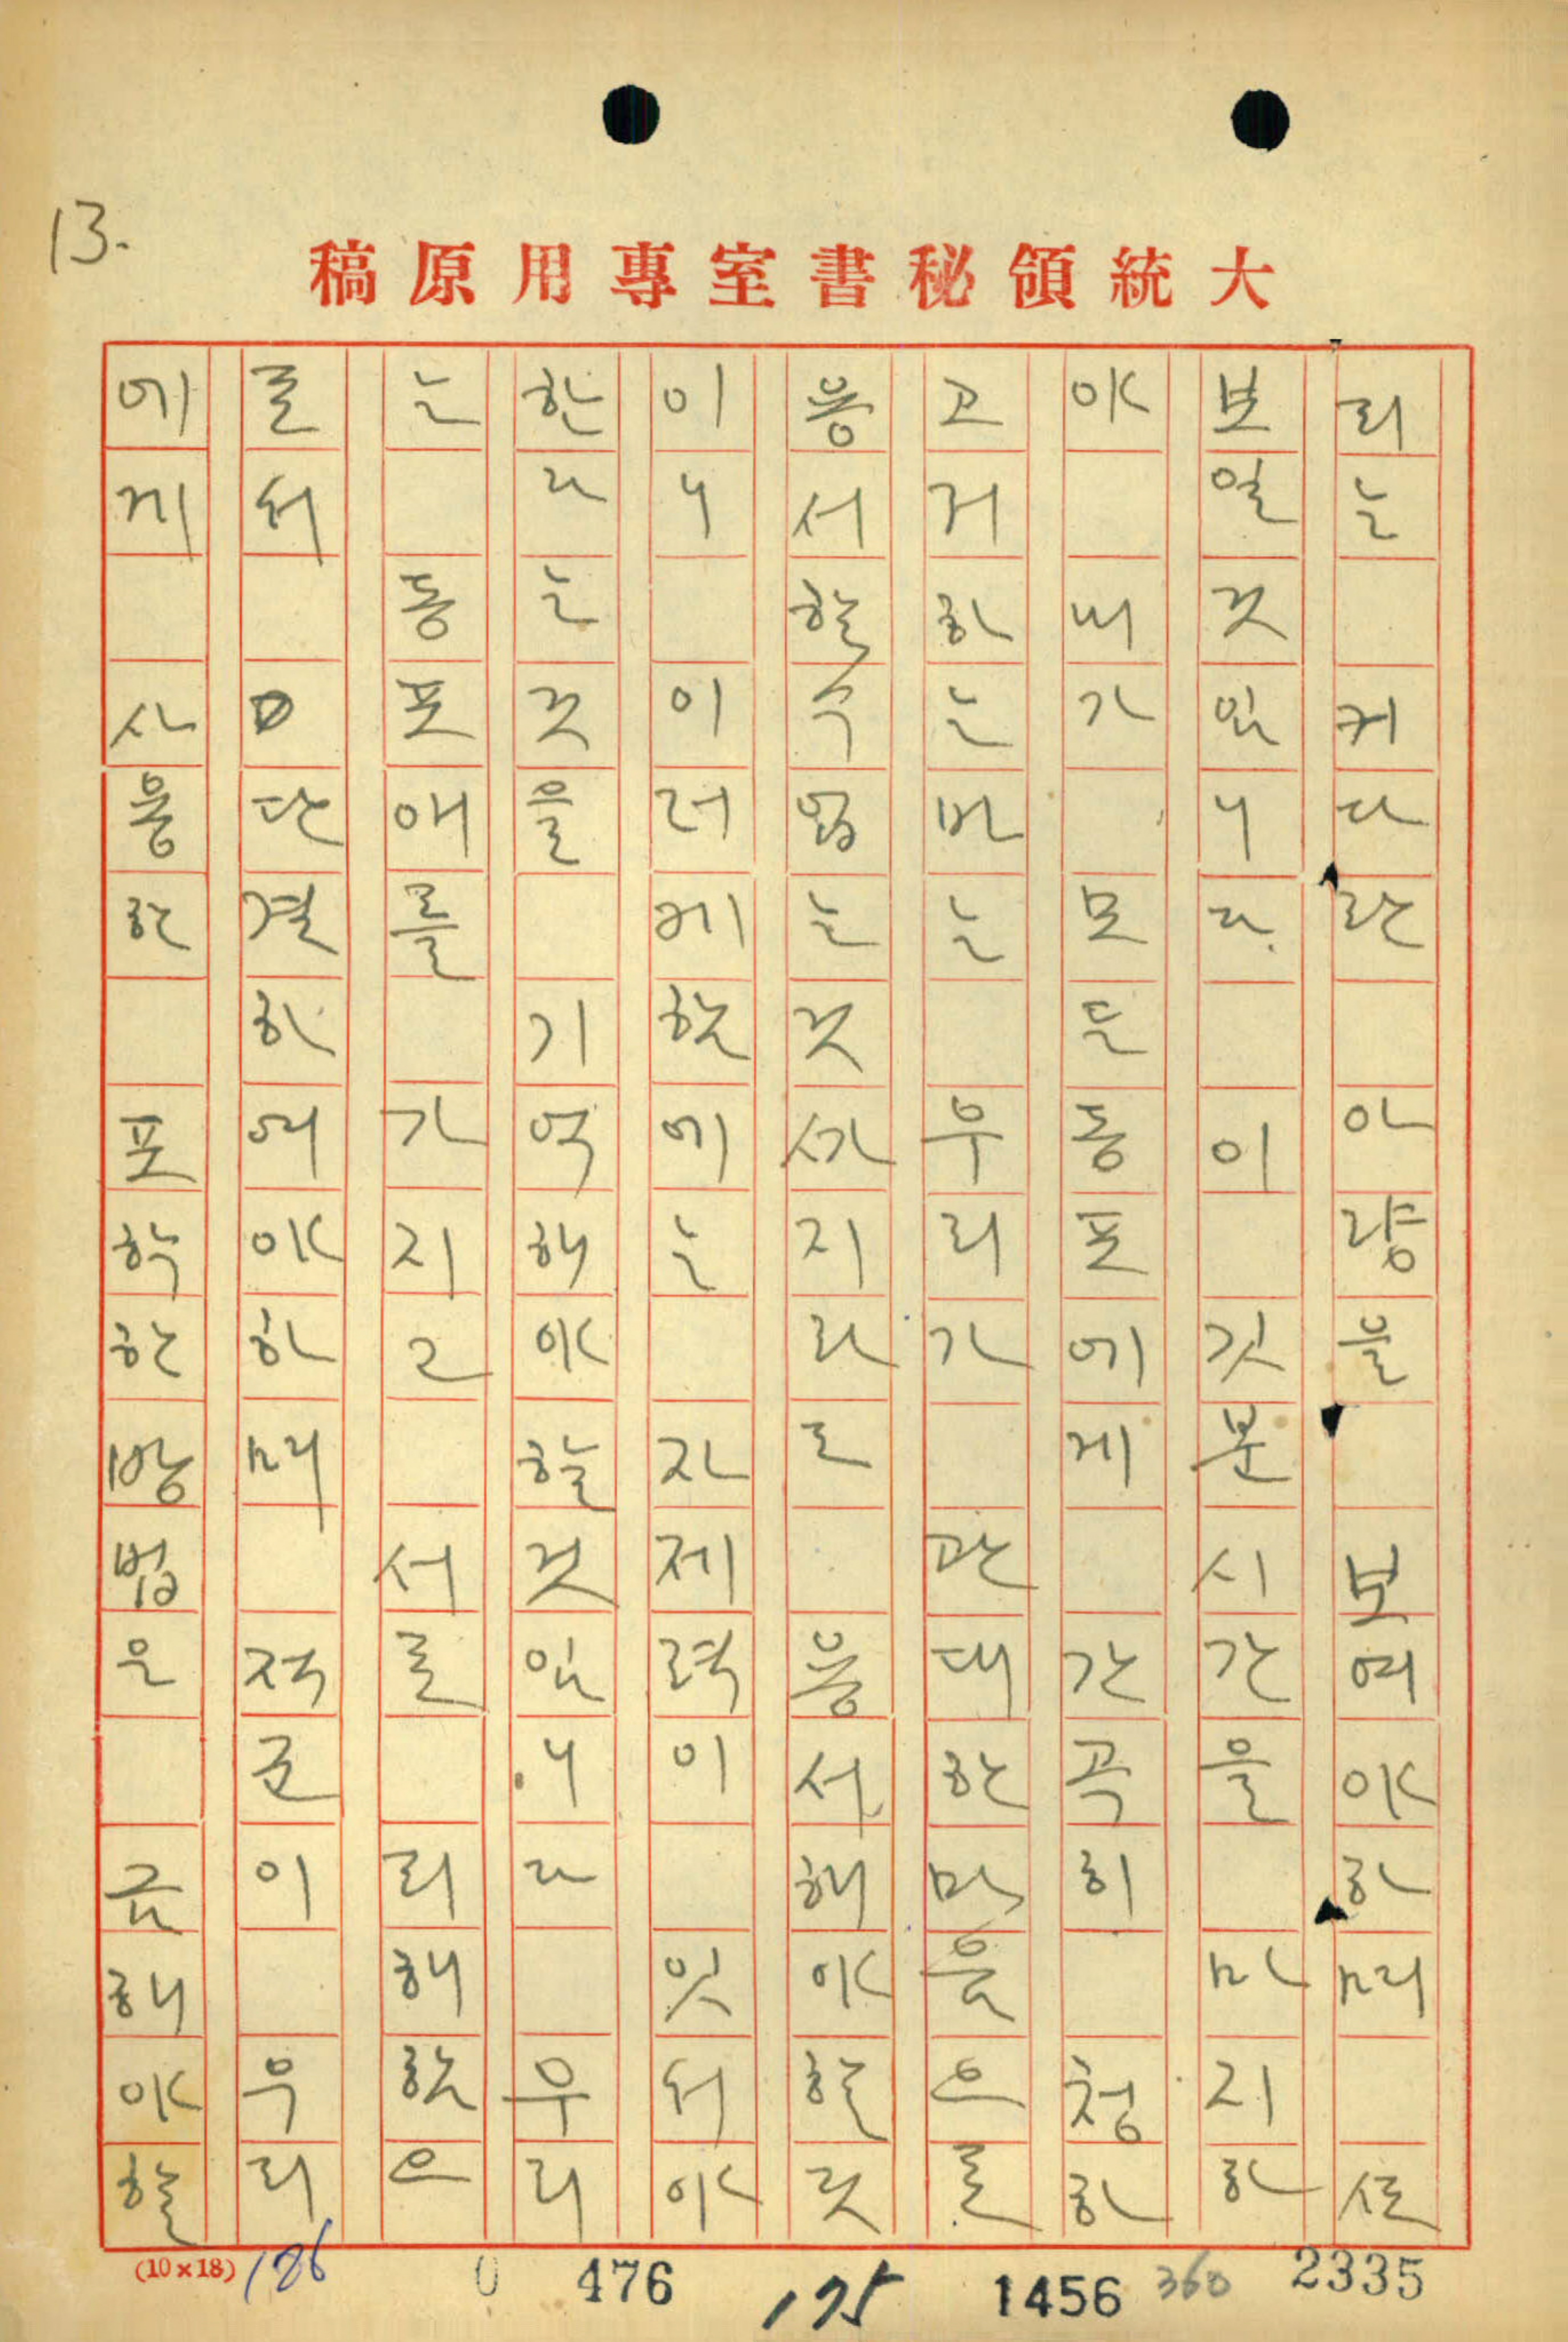 13.
大統領秘書室專用原稿
리는 커다란 아량을 보여야하며 ᄯᅩ
보일것입니다. 이 깃분시간을 마지하
야 내가 모든동포에게 간곡히 청하
고저하는바는 우리가 관대한마음으로
용서할수없는것ᄭᅡ지라도 용서해야할것
이니 이러케함에는 자제력이 잇서야
한다는것을 기억해야할것입니다 우리
는 동포애를 가지고 서로 리해함으
로서 단결하여야하며 적군이 우리
에게 사용한 포학한방법은 금해야할
(10×18) 186 0 476 175 1456 360 2335